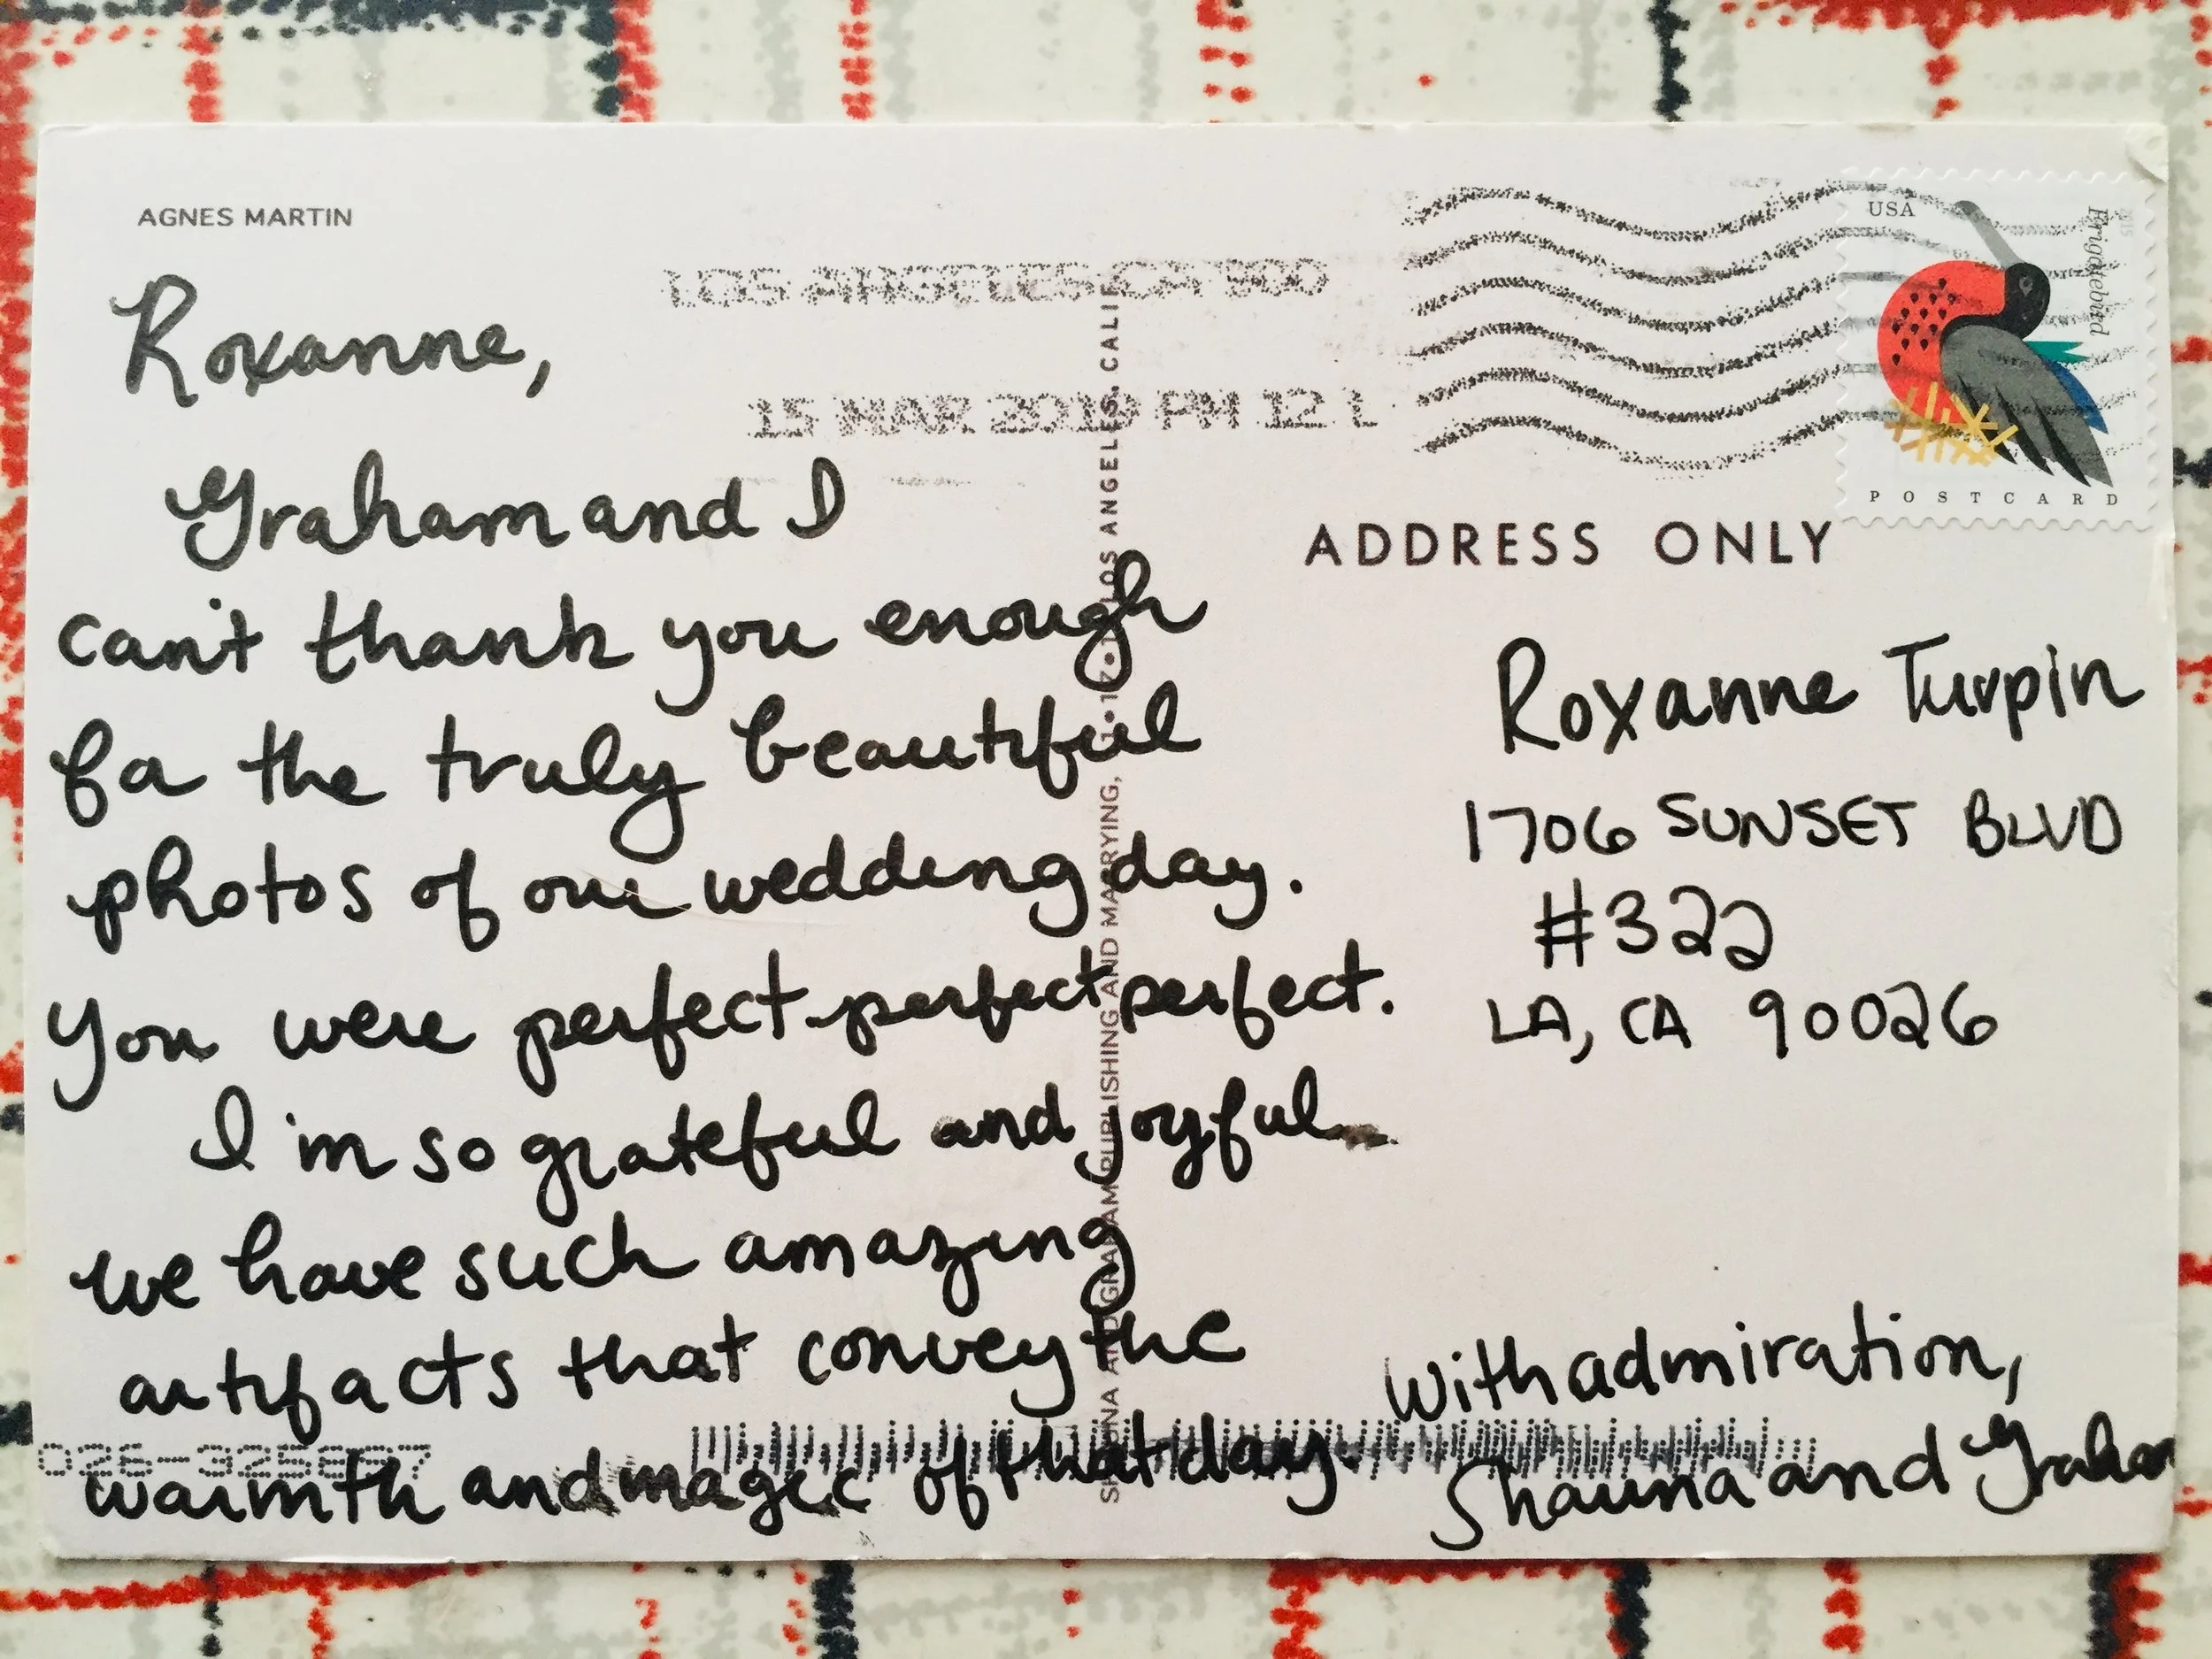 AGNES MARTIN
LOS ANGELES CA 900
15 MAR 2019 PM 12 L
USA
POSTCARD
Roxanne,
Graham and I
can't thank you enough
for the truly beautiful
photos of our wedding day.
You were perfect perfect perfect.
I'm so grateful and joyful
we have such amazing
artifacts that convey the
warmth and magic of that day.
SHAUNA AND GRAHAM PUBLISHING AND MARRYING, LOS ANGELES, CALIF
ADDRESS ONLY
Roxanne Turpin
1706 SUNSET BLVD
#322
LA, CA 90026
With admiration,
Shauna and Graham